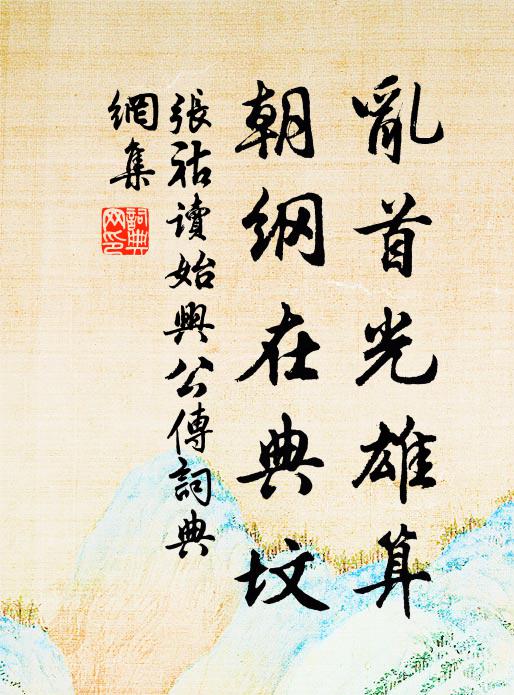 亂首光雄算
朝纲在典坟
張祜讀始興公傳詞典
網集
詞典网印